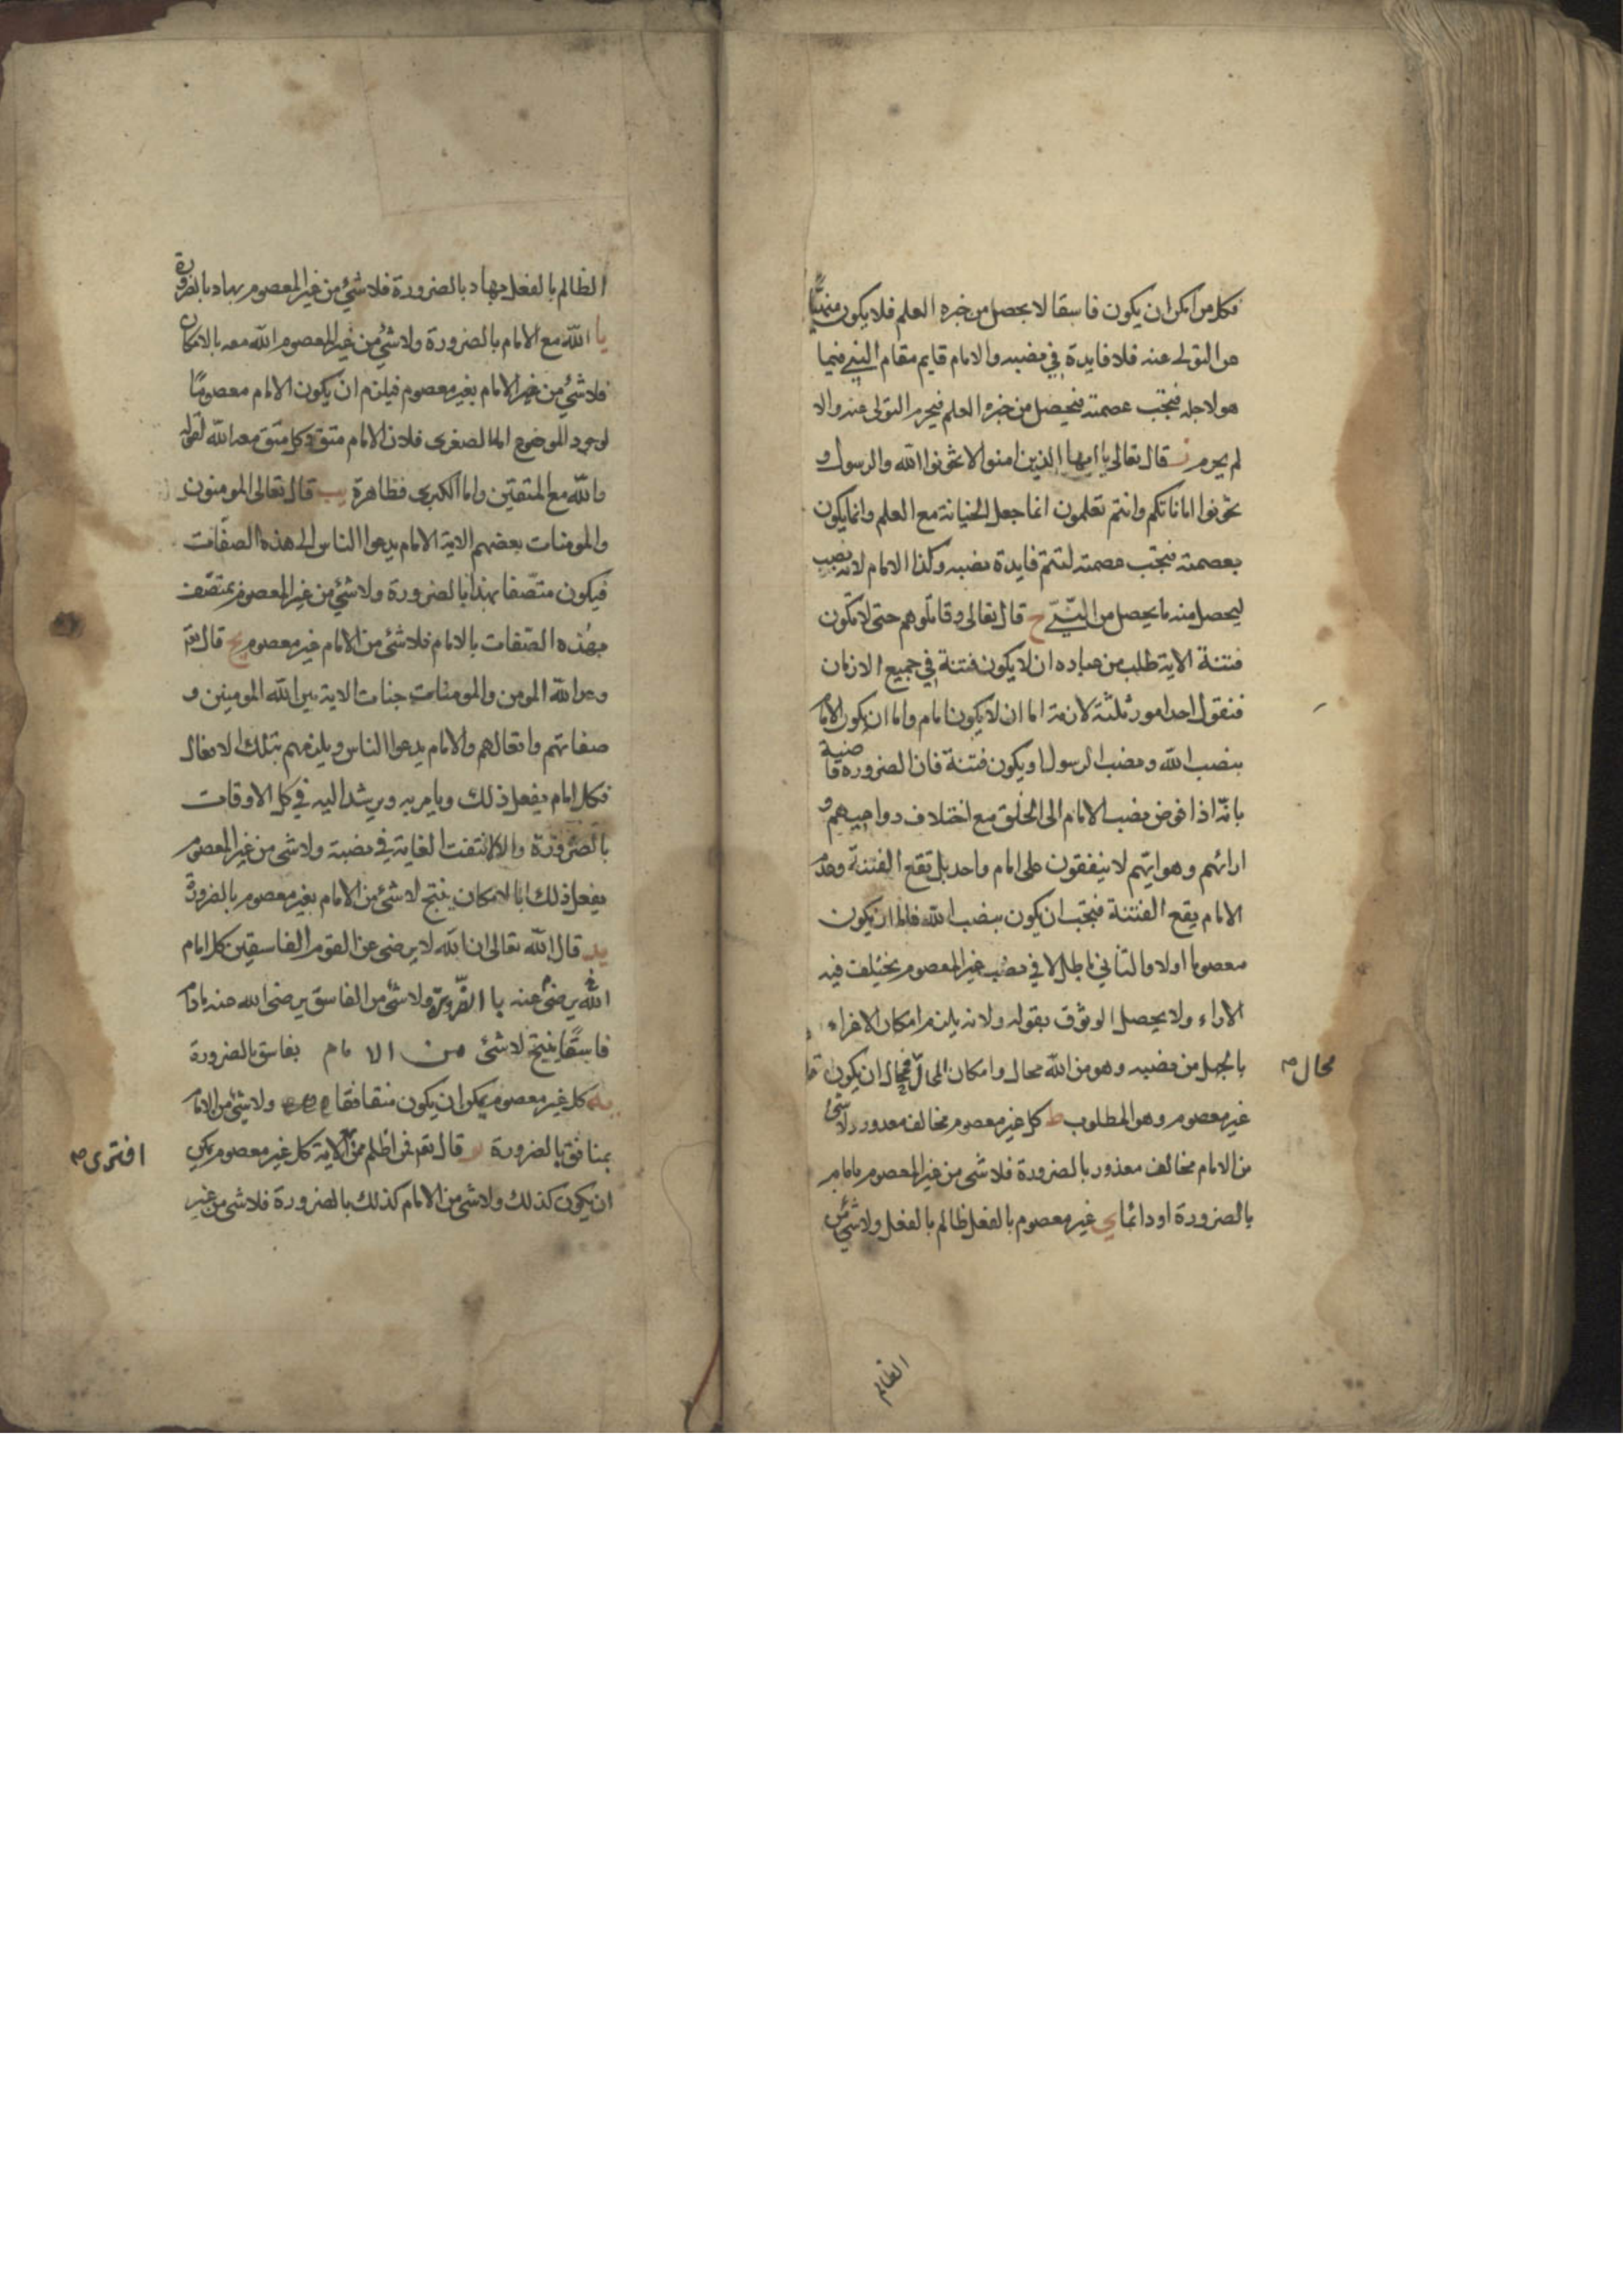 فكل من امكن ان يكون فاسقا لا يحصل من خبره العلم فلا يكون منهيًّا
عن التولى عنه فلا فايدة في نصبه والامام قايم مقام النبي فيما
هو لاجله فيجب عصمته فيحصل من خبره العلم فيحرم التولى عنه والا
لم يحرم ز قال تعالى يا ايها الذين امنوا لا تخونوا الله والرسول و
تخونوا اماناتكم وانتم تعلمون انما جعل الخيانة مع العلم وانما يكون
بعصمته فيجب عصمته لتتم فايدة نصبه وكذا الامام لانه نصب
ليحصل منه ما يحصل من النبيّ ح قال تعالى وقاتلوهم حتى لا تكون
فتنة الاية طلب من عباده ان لا يكون فتنة في جميع الازمان
فنقول احد امور ثلثة لازمة اما ان لا يكون امام واما ان يكون الامام
بنصب الله ونصب الرسول او يكون فتنة فان الضرورة قاضية
بانّه اذا فوض نصب الامام الى الخلق مع اختلاف دواعيهم و
ارائهم وهوايتهم لا يتفقون على امام واحد بل تقع الفتنة وعدم
الامام يقع الفتنة فيجب ان يكون بنصب الله فاما ان يكون
معصوما اولا والثاني باطل لا في نصب غير المعصوم يختلف فيه
الاراء ولا يحصل الوثوق بقوله ولانه يلزم امكان الاغراء
بالجهل من نصبه وهو من الله محال وامكان المحال فمحال ان يكون
محال صح
غير معصوم وهو المطلوب ط كل غير معصوم مخالف معذور ولا شئ
من الامام مخالف معذور بالضرورة فلا شى من غير المعصوم بامام
بالضرورة او دائما ى غير معصوم بالفعل ظالم بالفعل ولا شئ من
الظالم
الظالم بالفعل بهاد بالضرورة فلا شئ من غير المعصوم بهاد بالضرورة
يا الله مع الامام بالضرورة ولا شئ من غير المعصوم الله معه بالامكان
فلا شئ من غير الامام بغير معصوم فيلزم ان يكون الامام معصومًا
لوجود الموضوع اما الصغرى فلان الامام متق وكل متق معه الله لقوله
والله مع المتقين واما الكبرى فظاهرة يب قال تعالى المومنون
والمومنات بعضهم الاية الامام يدعوا الناس الى هذه الصفات
فيكون متصفا بهذا بالضرورة ولا شئ من غير المعصوم بمتصف
بهذه الصفات بالامام فلا شئ من الامام غير معصوم يج قال تعم
وعد الله المومن والمومنات جنات الاية بين الله المومنين و
صفاتهم وافعالهم والامام يدعوا الناس ويلزمهم بتلك الافعال
فكل امام يفعل ذلك ويامر به ويرشد اليه في كل الاوقات
بالضرورة والا لانتفت الغاية في نصبة ولا شى من غير المعصوم
يفعل ذلك ابا لامكان ينتج لا شئ من الامام بغير معصوم بالضرورة
يد قال الله تعالى ان الله لا يرضى عن القوم الفاسقين كل امام
الله يرضى عنه با الضرورة ولا شئ من الفاسق يرضى الله عنه مادام
فاسقًا ينتج لا شئ من الامام بفاسق بالضرورة
يه كل غير معصوم يمكن ان يكون منقافقا ولا شئ من الامام
بمنافق بالضرورة يو قال تعم فمن اظلم ممن الاية كل غير معصوم يمكن
افترى صح
ان يكون كذلك ولا شى من الامام كذلك بالضرورة فلا شى من غير